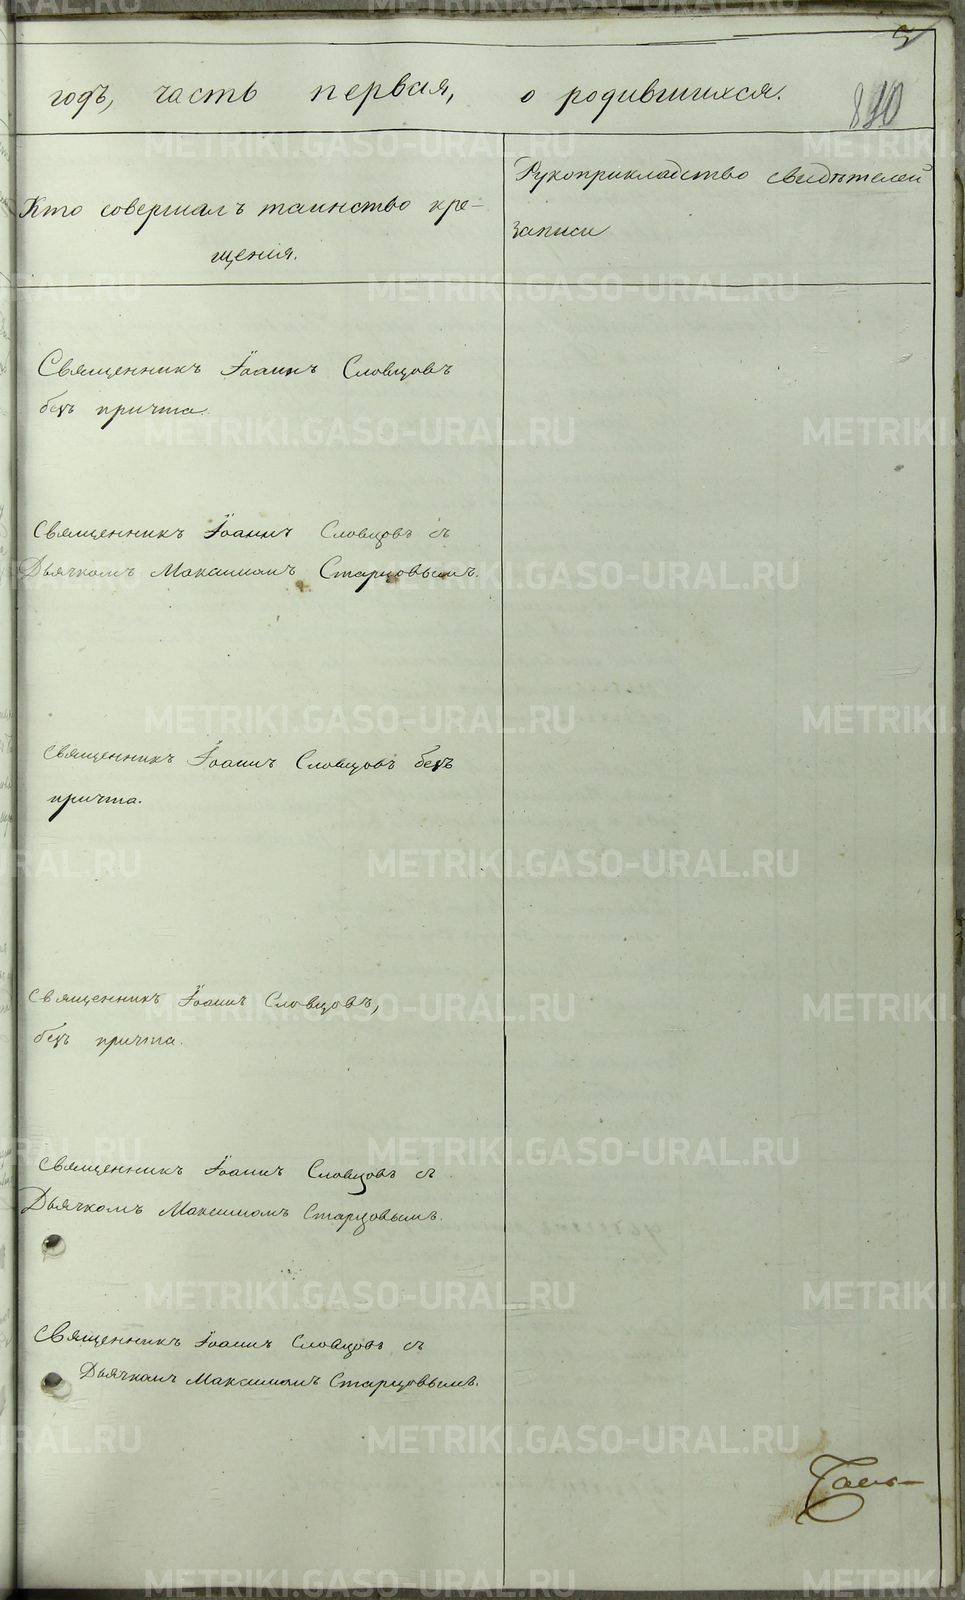 годъ, часть первая, о родившихся.
Кто совершалъ таинство кре-
щения.
Рукоприкладство свидѣтелей
записи
Священникъ Іоаннъ Словцовъ
безъ причта.
Священникъ Іоаннъ Словцовъ съ
Дьячкомъ Максимомъ Старцовымъ.
Священникъ Іоаннъ Словцовъ безъ
причта.
Священникъ Іоаннъ Словцовъ,
безъ причта.
Священникъ Іоаннъ Словцовъ съ
Дьячкомъ Максимомъ Старцовымъ.
Священникъ Іоаннъ Словцовъ съ
Дьячкомъ Максимомъ Старцовымъ.
METRIKI.GASO-URAL.RU